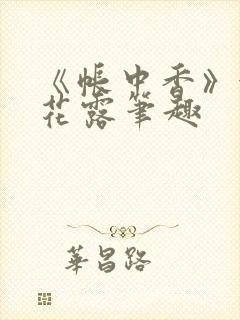 《帐中香》
花露笔趣
華昌路